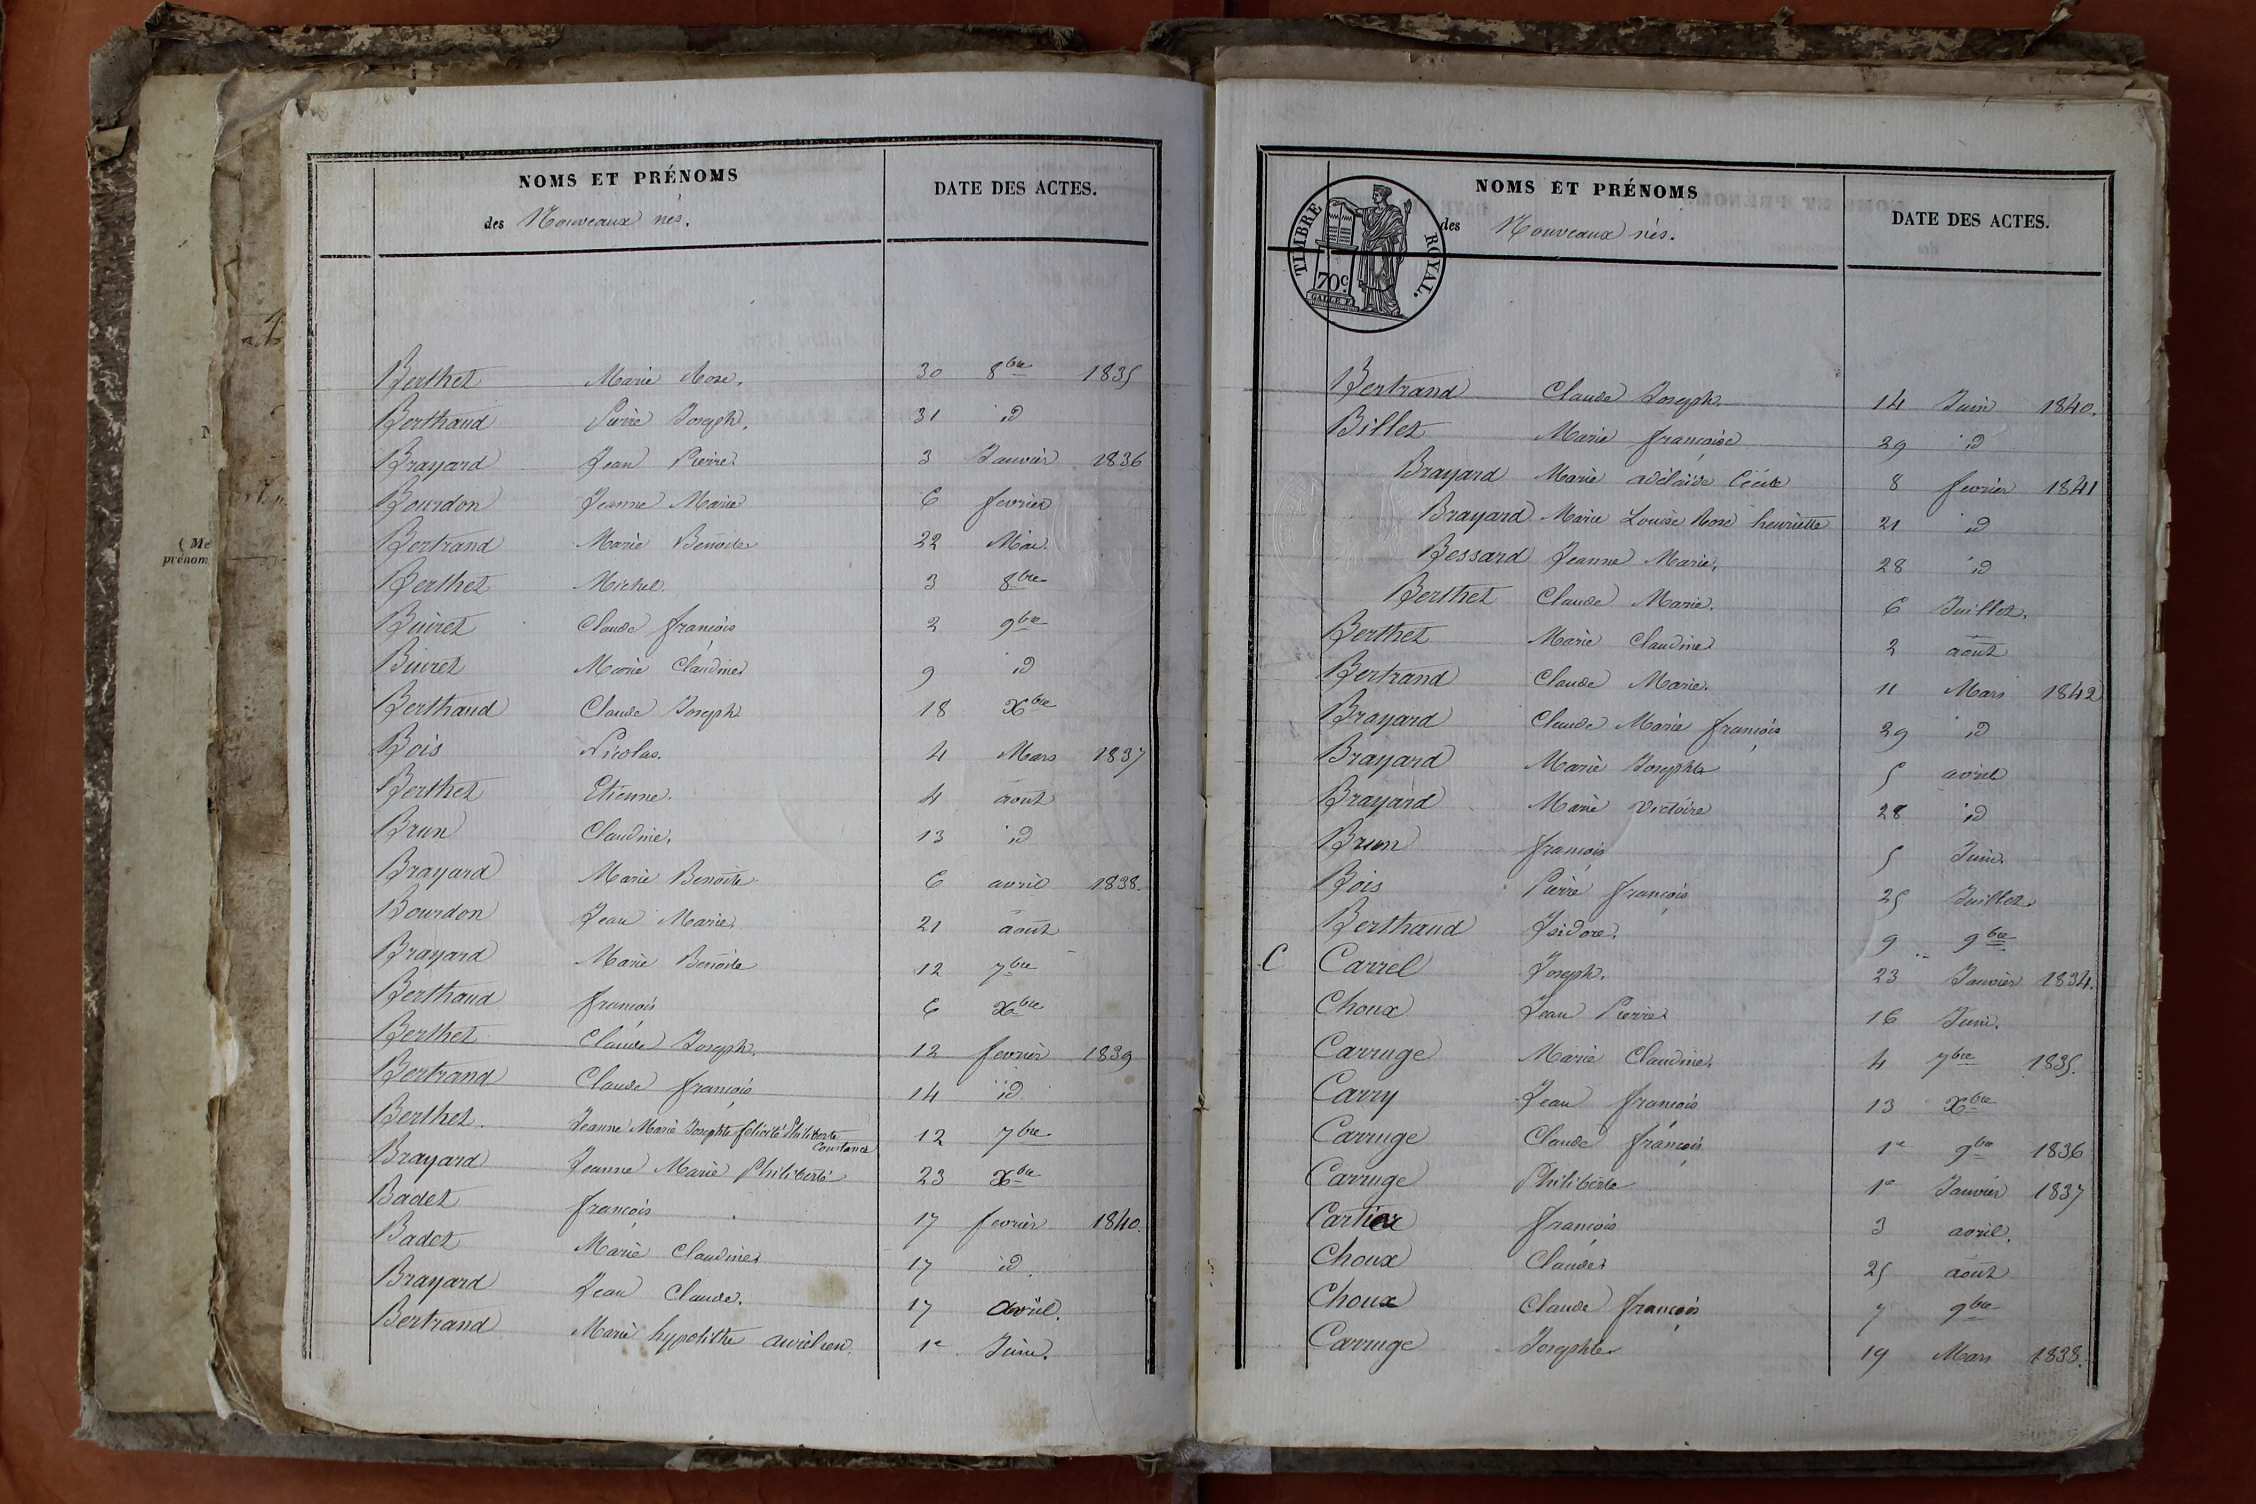 NOMS ET PRÉNOMS
des Nouveaux nés.
DATE DES ACTES.
Berthet Marie Rose. 30 8bre 1835
Berthaud Pierre Joseph. 31 id
Brayard Jean Pierre 3 Janvier 1836
Bourdon Jeanne Marie 6 fevrier
Bertrand Marie Benoite 22 Mai
Berthet Michel. 3 8bre
Buiret Claude françois 2 9bre
Buiret Marie Claudine 9 id
Berthaud Claude Joseph 18 Xbre
Bois Nicolas. 4 Mars 1837
Berthet Etienne. 4 août
Brun Claudine. 13 id
Brayard Marie Benoite 6 avril 1838.
Bourdon Jean Marie 21 août
Brayard Marie Benoite 12 7bre
Berthaud françois 6 Xbre
Berthet Claude Joseph. 12 fevrier 1839
Bertrand Claude françois 14 id
Berthet. Jeanne Marie Josephte félicité Philiberte Constance 12 7bre
Brayard Jeanne Marie Philiberte 23 Xbre
Badet françois 17 fevrier 1840.
Badet Marie Claudine 17 id.
Brayard Jean Claude. 17 avril.
Bertrand Marie hypolithe aurelien. 1e Juin.
(Me
prénom
TIMBRE ROYAL.
70c.
NOMS ET PRÉNOMS
des Nouveaux nés.
DATE DES ACTES.
Bertrand Claude Joseph. 14 Juin 1840.
Billet Marie françoise 29 id
Brayard Marie adélaïde Cécile 8 fevrier 1841
Brayard Marie Louise Rose henriette 21 id
Bessard Jeanne Marie. 28 id
Berthet Claude Marie. 6 Juillet.
Berthet Marie Claudine 2 août
Bertrand Claude Marie. 11 Mars 1842
Brayard Claude Marie françois 29 id
Brayard Marie Josephte 5 avril
Brayard Marie victoire 28 id
Brun françois 5 Juin.
Bois Pierre françois 25 Juillet.
Berthaud Isidore. 9 9bre
C Carrel Joseph. 23 Janvier 1834.
Choux Jean Pierre 16 Juin.
Carruge Marie Claudine. 4 7bre 1835.
Carry Jean françois 13 Xbre
Carruge Claude françois 1e 9bre 1836
Carruge Philiberte 1e Janvier 1837
Cartier françois 3 avril.
Choux Claude 25 août
Choux Claude françois 7 9bre
Carruge Josephte 19 Mars 1838.